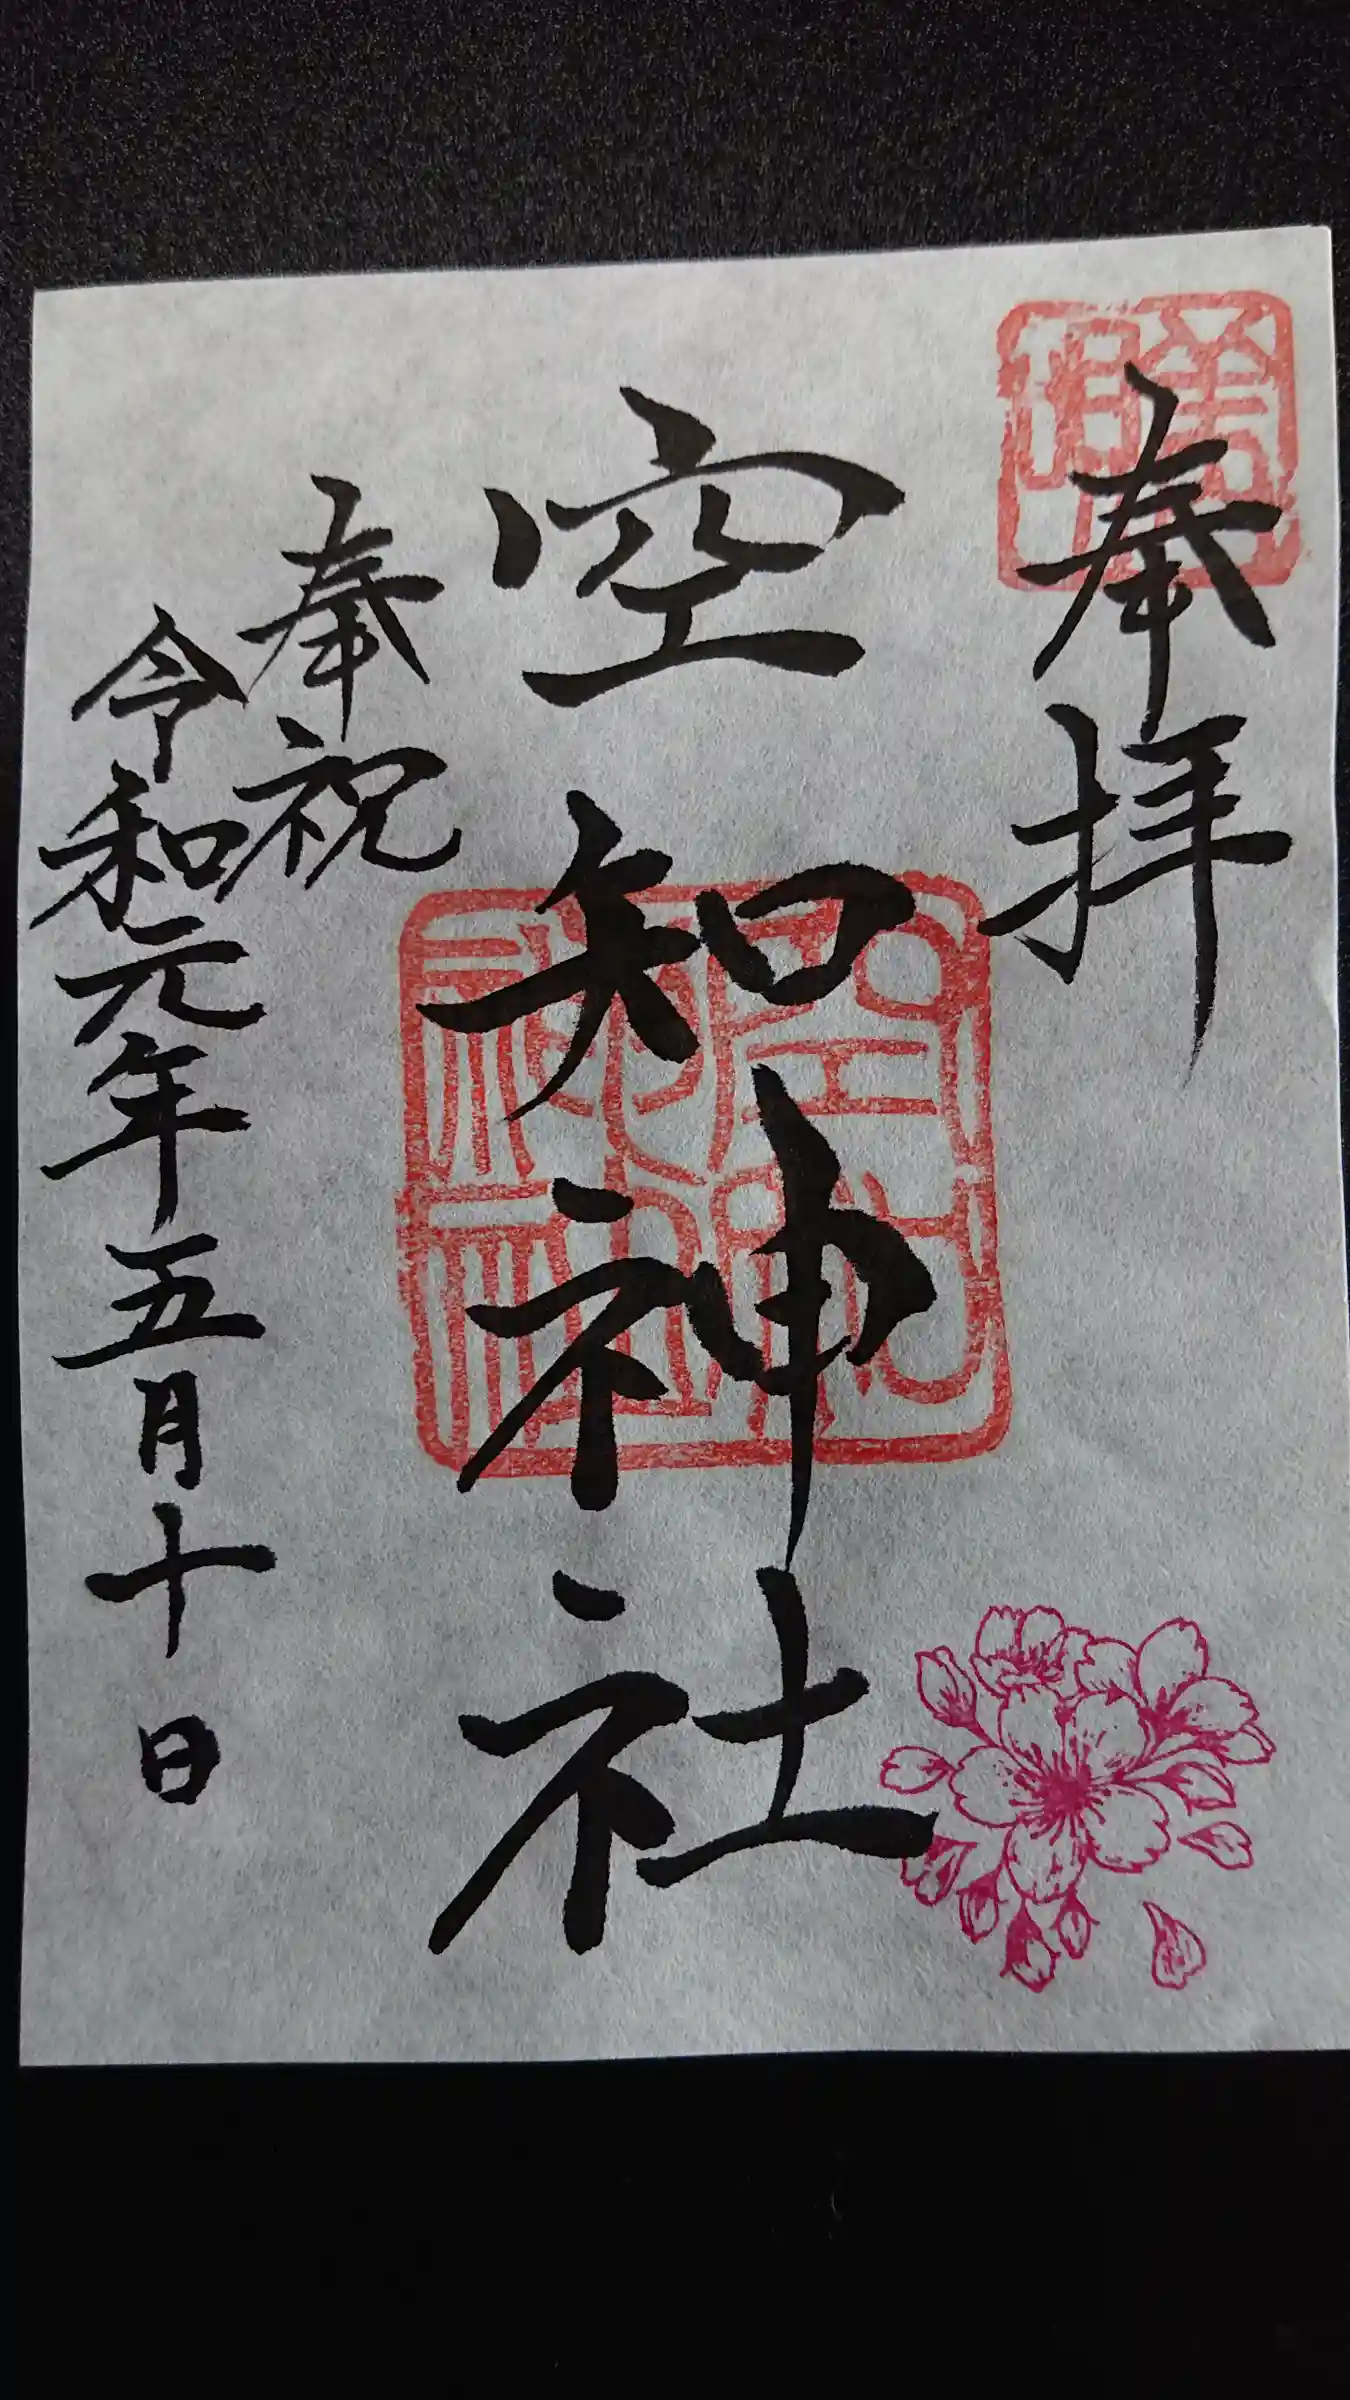 奉拝
空知神社
奉祝
令和元年五月十日
空知神社
美唄